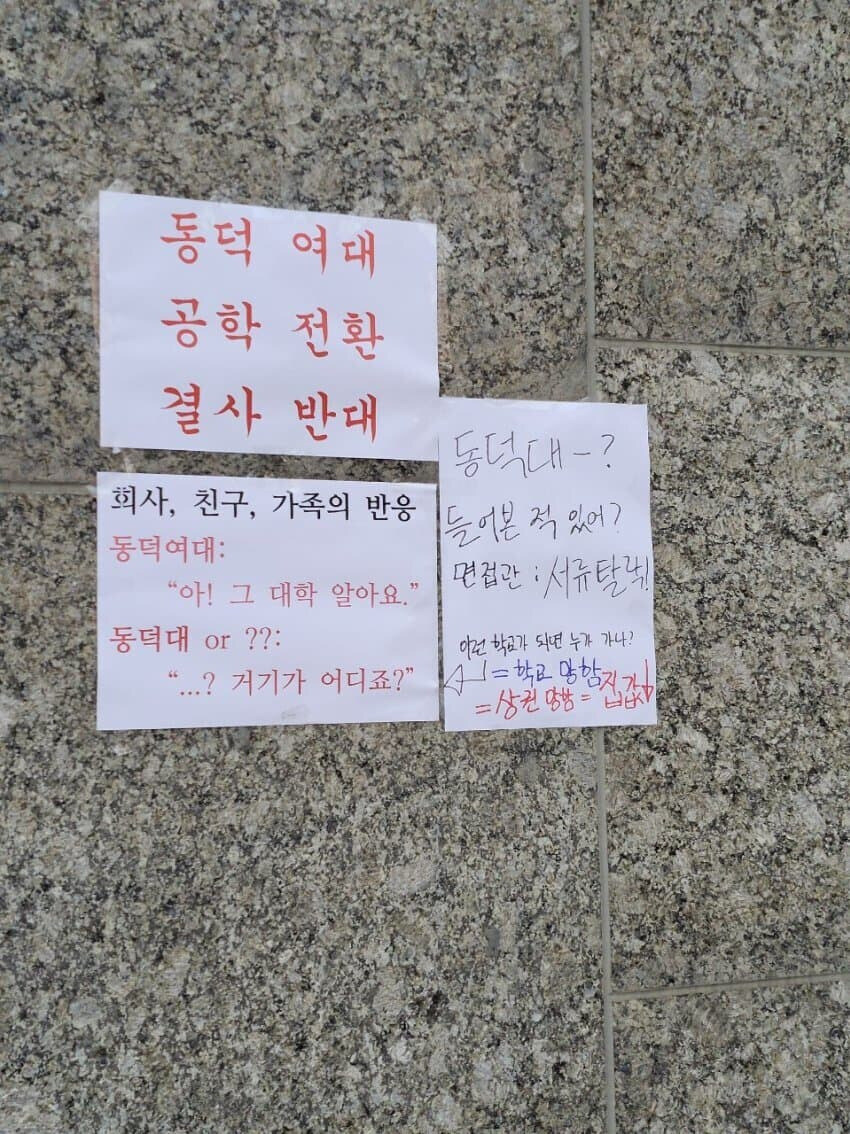 동덕 여대
공학 전환
결사 반대
회사, 친구, 가족의 반응
동덕여대:
“아! 그 대학 알아요.”
동덕대 or ??:
“...? 거기가 어디죠?”
동덕대-?
들어본 적 있어?
면접관 : 서류탈락!
이런 학교가 되면 누가 가냐?
= 학교 망함
= 상권 망함 = 집값↓